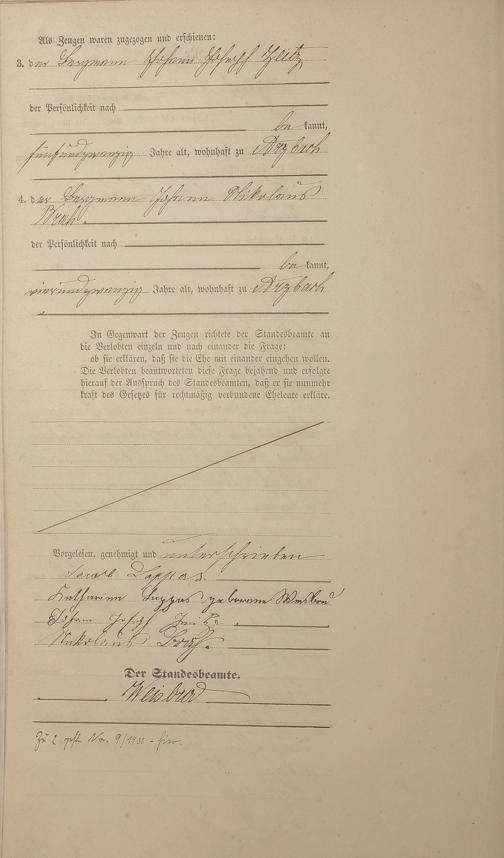 Als Zeugen waren zugezogen und erschienen:
3. der Bergmann Johann Joseph Zeitz
der Persönlichkeit nach
be kannt,
fünfundzwanzig Jahre alt, wohnhaft zu Arzbach
4. der Bergmann Johann Nikolaus
der Persönlichkeit nach
be kannt,
vierundzwanzig Jahre alt, wohnhaft zu Arzbach
In Gegenwart der Zeugen richtete der Standesbeamte an
die Verlobten einzeln und nach einander die Frage:
ob sie erklären, daß sie die Ehe mit einander eingehen wollen.
Die Verlobten beantworteten diese Frage bejahend und erfolgte
hierauf der Ausspruch des Standesbeamten, daß er sie nunmehr
kraft des Gesetzes für rechtmäßig verbundene Eheleute erkläre.
Vorgelesen, genehmigt und unterschrieben
Jacob Lappas.
Katharina Lappas geborene
Johann Joseph
Nikolaus
Der Standesbeamte.
Weisbrod
Zu 2 Nr. 9/1901